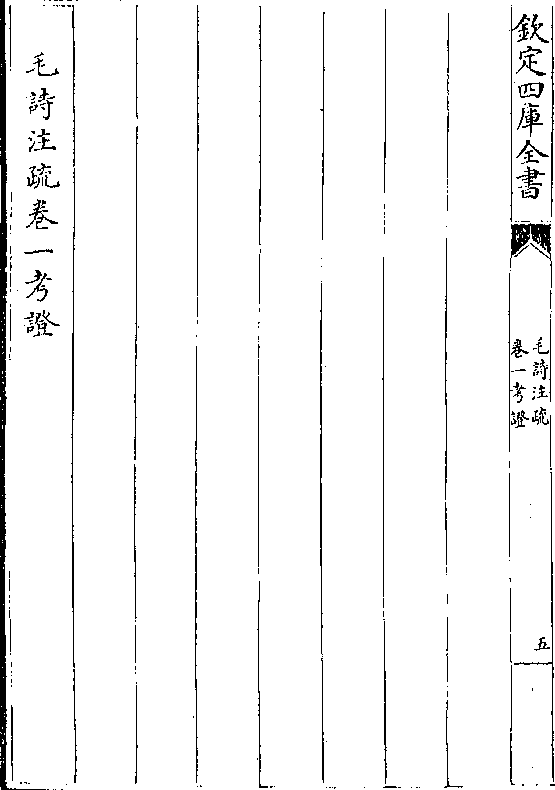 欽定四庫全書
毛詩注疏
卷一考證
五
毛詩注疏卷一考證